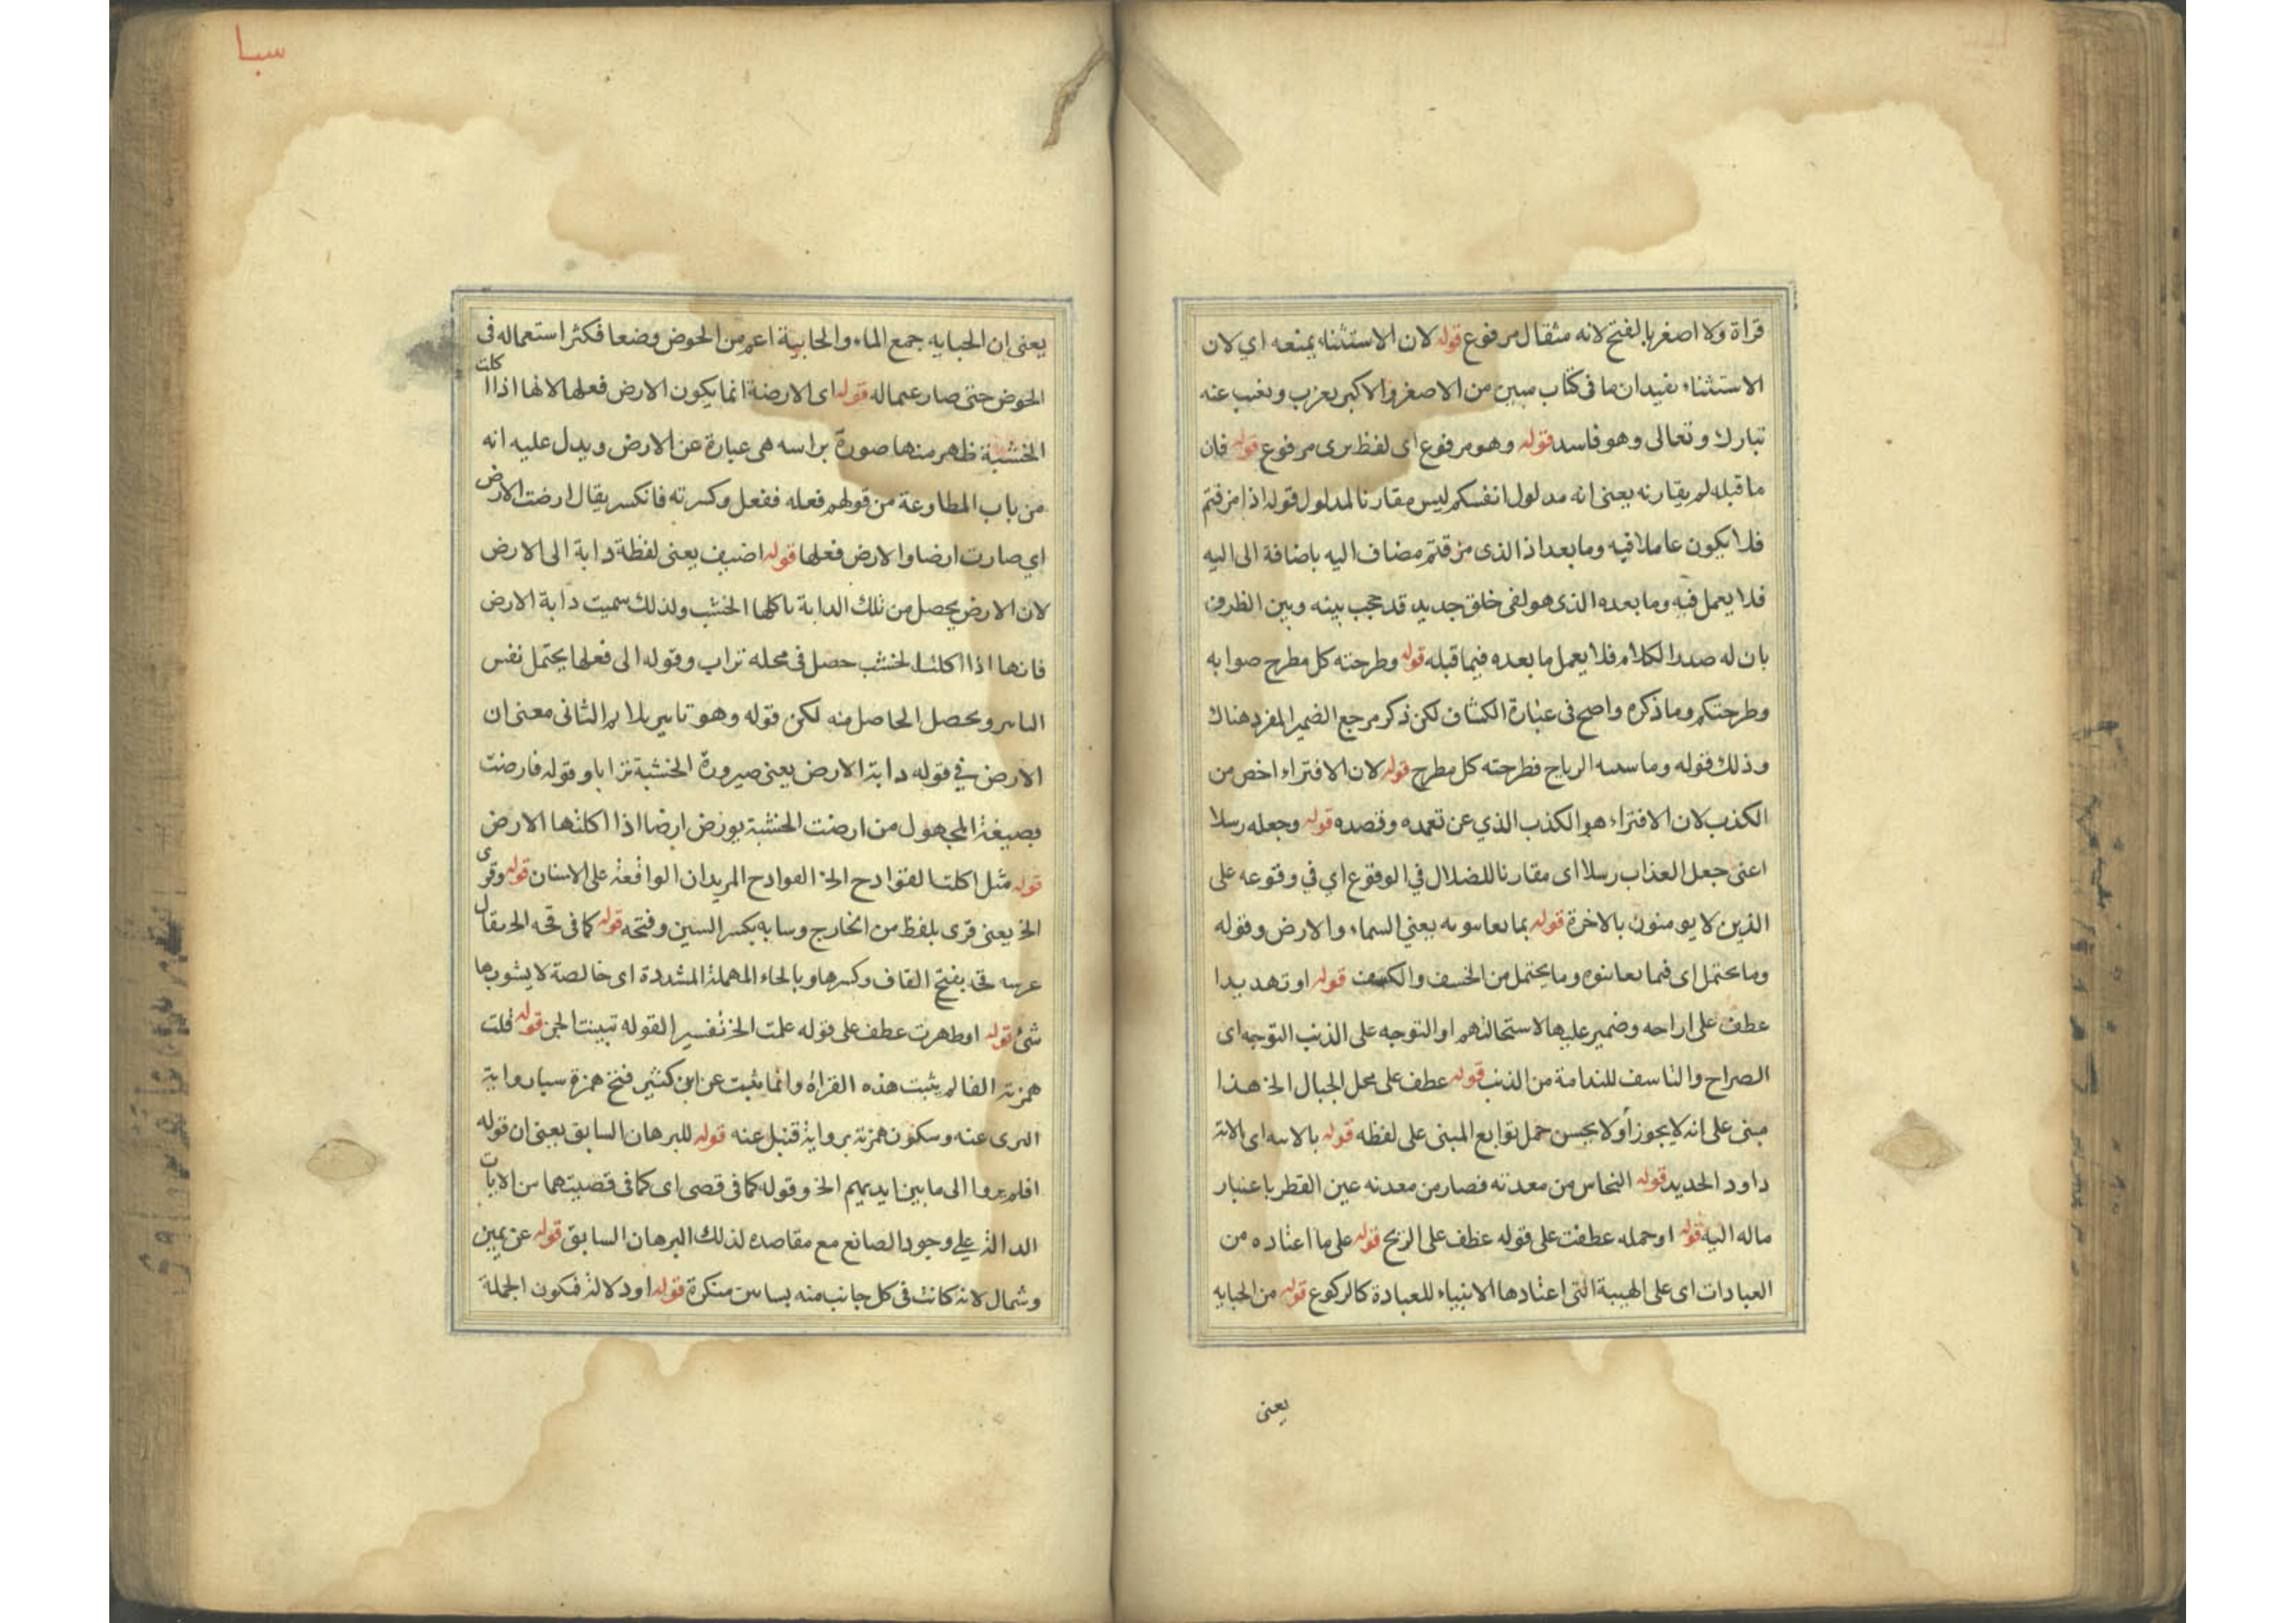 قراة ولا اصغر بالفتح لانه مثقال مرفوع قوله لان الاستثناء يمنعه اي لان
الاستثناء يفيد ان ما فى كتاب مبين من الاصغر والاكبر يعزب ويغيب عنه
تبارك وتعالى وهو فاسد قوله وهو مرفوع اى لفظ يرى مرفوع قوله فان
ما قبله لم يقارنه يعنى انه مدلول انفسكم ليس مقارنا لمدلول قوله اذا مزقتم
فلا يكون عاملا فيه وما بعد اذا الذى مزقتم مضاف اليه باضافة الى اليه
فلا يعمل فيه وما بعده الذى هو لفى خلق جديد قد حجب بينه وبين الظرف
بان له صدر الكلام فلا يعمل ما بعده فيما قبله قوله وطرحته كل مطرح صوابه
وطرحتكم وما ذكره واضح فى عبارة الكشاف لكن ذكر مرجع الضمير المفرد هناك
وذلك قوله وما سسه الرياح فطرحته كل مطرح قوله لان الافتراء اخص من
الكذب لان الافتراء هو الكذب الذي عن تعمده وقصده قوله وجعله رسلا
اعنى جعل العذاب رسلا اى مقارنا للضلال في الوقوع اي في وقوعه على
الذين لا يومنون بالاخرة قوله بما يعاسونه يعني السماء والارض وقوله
وما يحتمل اى فيما يعاينوه وما يحتمل من الخسف والكسف قوله او تهديدا
عطف على اراحه وضمير عليها لاستحالتهم او التوجه على الذنب التوجه اى
الصراح والتاسف للندامة من الذنب قوله عطف على محل الجبال الخ هذا
مبنى على انه لا يجوز أو لا يحسن حمل توابع المبنى على لفظه قوله بالاسه اى الانة
داود الحديد قوله النحاس من معدنه فصار من معدنه عين القطر باعتبار
ماله اليه قوله او حمله عطفت على قوله عطف على الريح قوله على ما اعتاده من
العبادات اى على الهيبة التى اعتادها الانبياء للعبادة كالركوع قوله من الجبايه
يعنى
سبا
يعنى ان الجبايه جمع الماء والجابية اعم من الحوض وضعا فكثر استعماله فى
الحوض حتى صار علماله قوله اى الارضة انما يكون الارض فعلها لانها اذا اكلت
الخشبة ظاهر منها صورة براسه هى عبارة عن الارض ويدل عليه انه
من باب المطاوعة من قولهم فعله ففعل وكسرته فانكسر يقال ارضت الارض
اي صارت ارضا والارض فعلها قوله اضيف يعنى لفظة دابة الى الارض
لان الارض يحصل من تلك الدابة باكلها الخشب ولذلك سميت دابة الارض
فانها اذا اكلت الخشب حصل فى محله تراب وقوله الى فعلها يحتمل نفس
التاسر ويحصل الحاصل منه لكن قوله وهو تاسر يلايم الثانى معنى ان
الارض في قوله دابة الارض يعنى صيرورة الخشبة ترابا وقوله فارضت
بصيغة المجهول من ارضت الخشبة يورض ارضا اذا اكلتها الارض
قوله مثل اكلت القوادح الخ القوادح المريدان الواقعة على الاسنان قوله وقرى
الخ يعنى قرى بلفظ من الخارج وسابه بكسر السين وفتحه قوله كما فى قحه الخ يقال
عربيه قحة بفتح القاف وكسرها وبالحاء المهملة المشددة اى خالصة لا يشوبها
شئ قوله او ظهرت عطف على قوله علمت الخ تفسير القوله تبينت الجن قوله قلت
همزته الفا لم يثبت هذه القراة وانما يثبت عن ابن كثير فتح همزة سبا رواية
البزى عنه وسكون همزته برواية قنبل عنه قوله للبرهان السابق يعنى ان قوله
افلم يروا الى ما بين ايديهم الخ وقوله كما فى قصى اى كما فى قضيتهما من الايات
الدالة على وجود الصانع مع مقاصده لذلك البرهان السابق قوله عن يمين
وشمال لانه كانت فى كل جانب منه بساتين متكرة قوله او دلالة فيكون الجملة